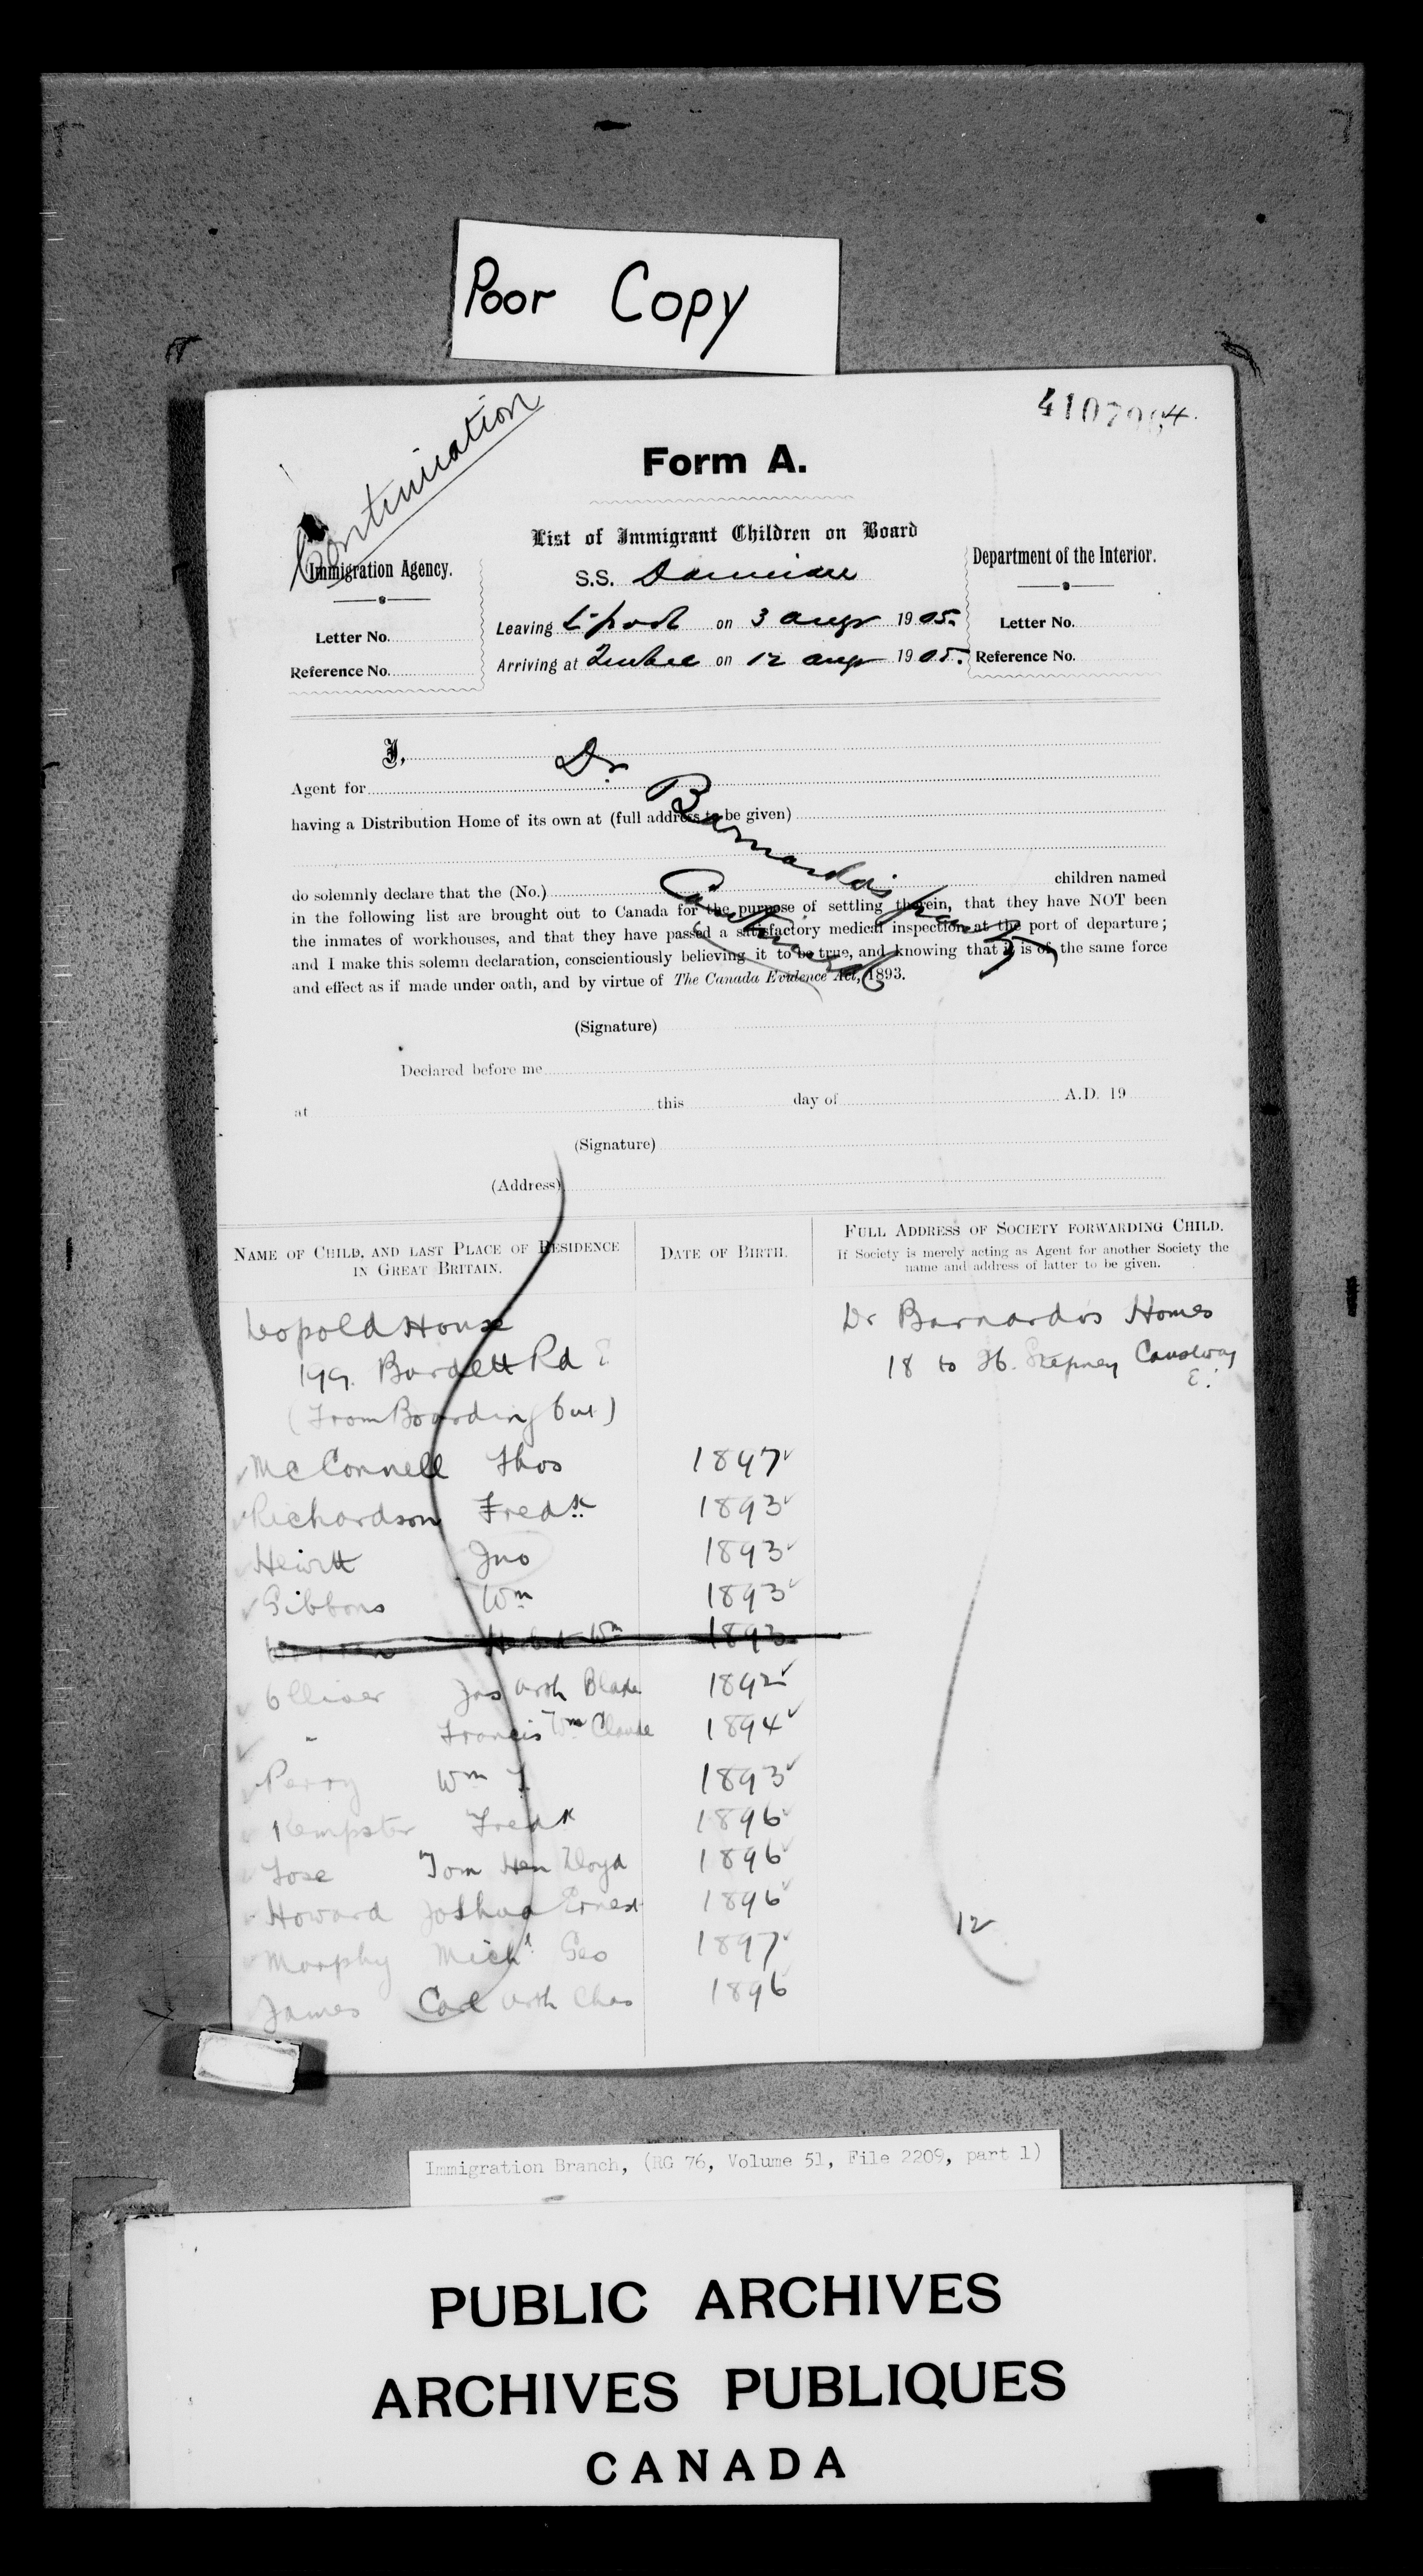 Poor Copy
Continuation
Form A.
List of Immigrant Children on Board
Immigration Agency.
S.S.
Department of the Interior.
Letter No.
Leaving L'pool on 3 Aug 1905.
Letter No.
Reference No.
Arriving at Quebec on 12 Aug 1905.
Reference No.
I,
Dr
Agent for
Barnardo's party
having a Distribution Home of its own at (full address to be given)
Continued
do solemnly declare that the (No.) children named
in the following list are brought out to Canada for the purpose of settling therein, that they have NOT been
the inmates of workhouses, and that they have passed a satisfactory medical inspection at the port of departure;
and I make this solemn declaration, conscientiously believing it to be true, and knowing that it is of the same force
and effect as if made under oath, and by virtue of The Canada Evidence Act, 1893.
(Signature)
Declared before me
at this day of A.D. 19
(Signature)
(Address)
NAME OF CHILD, AND LAST PLACE OF RESIDENCE
IN GREAT BRITAIN.
DATE OF BIRTH.
FULL ADDRESS OF SOCIETY FORWARDING CHILD.
If Society is merely acting as Agent for another Society the
name and address of latter to be given.
Leopold House
199. Burdett Rd E
(From Boarding Out)
Dr Barnardos Homes
18 to 26. Stepney Causeway
E.
McConnell Thos 1897
Richardson Fredk 1893
Hewitt Jno 1893
Gibbons Wm 1893
Wm 1893
Olliver Jas Arth 1892
" Francis Wm Claude 1894
Perry Wm 1893
Kempster Fredk 1896
Tose Tom Hen Lloyd 1896
Howard Joshua Ernest 1896
12
Murphy Michl Geo 1897
James Carl Arth Chas 1896
Immigration Branch, (RG 76, Volume 51, File 2209, part 1)
PUBLIC ARCHIVES
ARCHIVES PUBLIQUES
CANADA